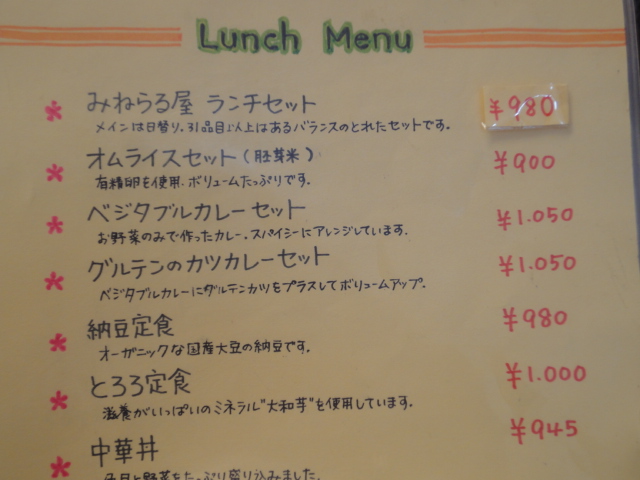 Lunch Menu
* みねらる屋 ランチセット ¥980
メインは日替り.31品目以上はあるバランスのとれたセットです。
* オムライスセット(胚芽米) ¥900
有精卵を使用.ボリュームたっぷりです。
* ベジタブルカレーセット ¥1.050
お野菜のみで作ったカレー.スパイシーにアレンジしています.
* グルテンのカツカレーセット ¥1.050
ベジタブルカレーにグルテンカツをプラスしてボリュームアップ.
* 納豆定食 ¥980
オーガニックな国産大豆の納豆です.
* とろろ定食 ¥1.000
滋養がいっぱいのミネラル"大和芋"を使用しています.
* 中華丼 ¥945
と野菜をたっぷり盛り込みました.